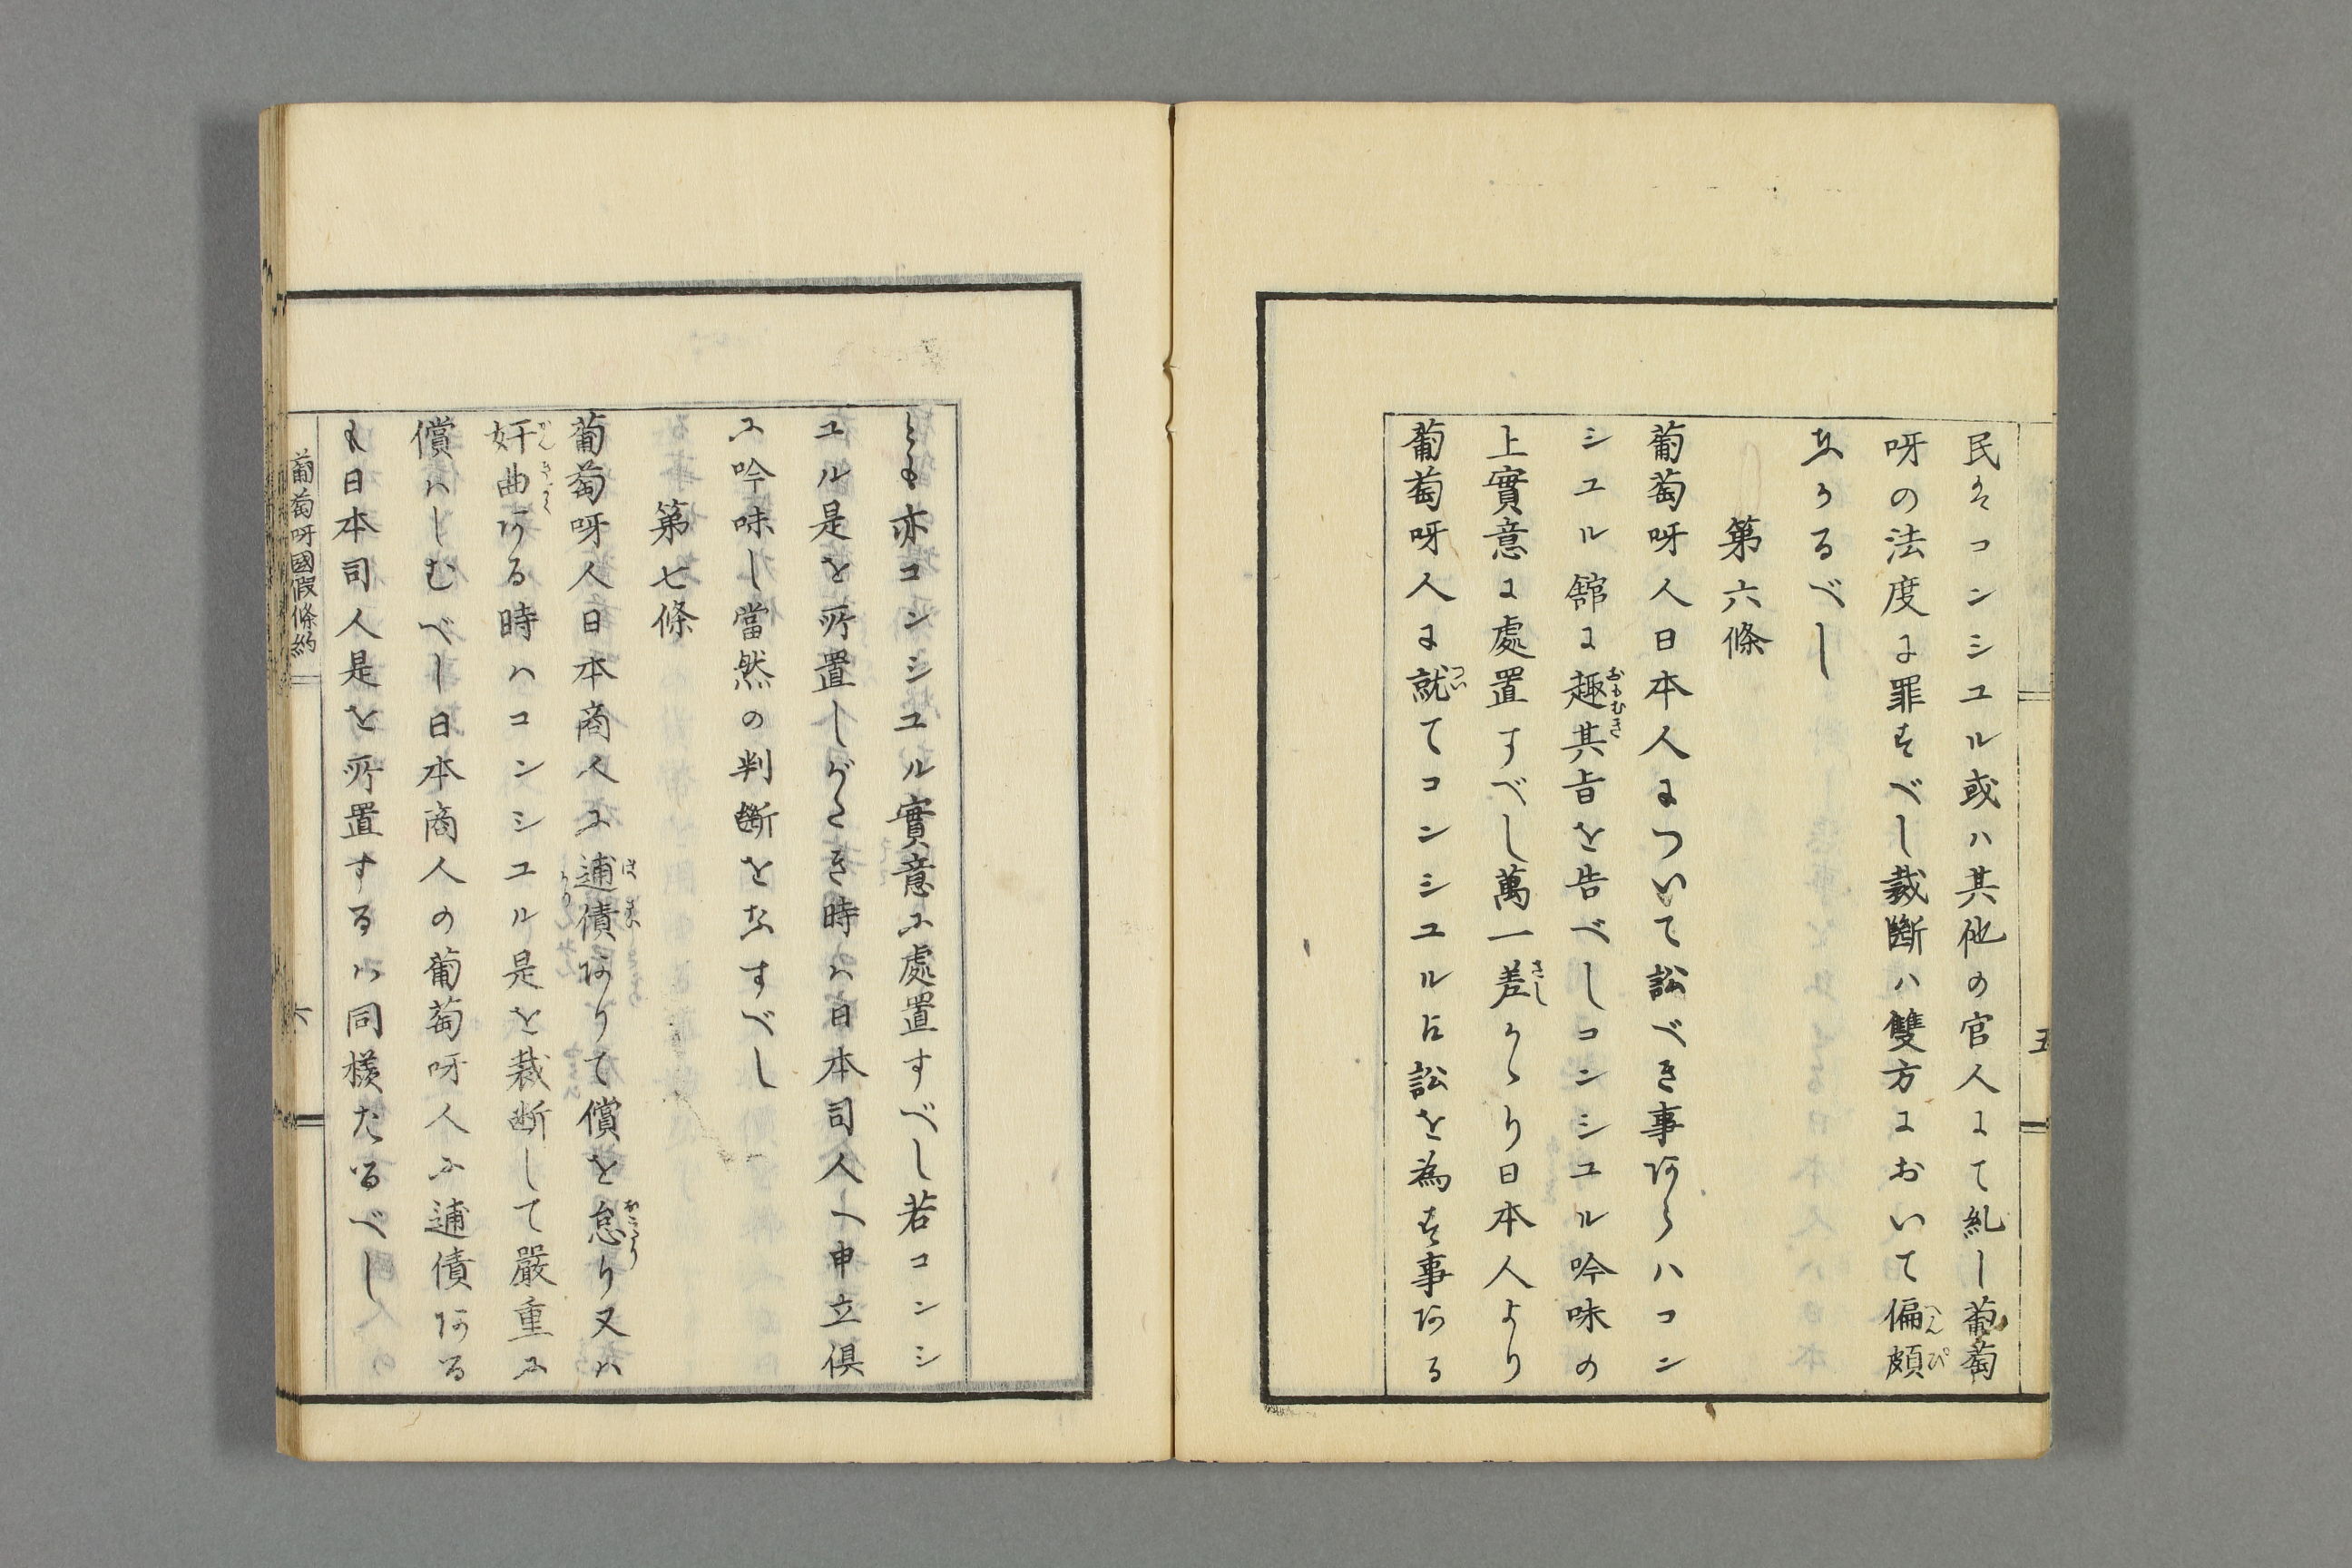 五
民はコンシユル或ハ其他の官人にて糺し葡萄
呀の法度に罪すべし裁斷ハ雙方において偏頗
なかるべし
第六條
葡萄呀人日本人について訟べき事あらハコン
シユル舘に趣其旨を告べしコンシユル吟味の
上實意に處置すべし萬一差かゝり日本人より
葡萄呀人に就てコンシユルに訟を為す事ある
とも亦コンシユル實意に處置すべし若コンシ
ユル是を所置しがたき時ハ日本司人へ申立倶
に吟味し當然の判斷をなすべし
第七條
葡萄呀人日本商人に逋債ありて償を怠り又ハ
奸曲ある時ハコンシユル是を裁断して嚴重に
償ハしむべし日本商人の葡萄呀人に逋債ある
も日本司人是を所置するハ同様たるべし
葡萄呀國假條約
六